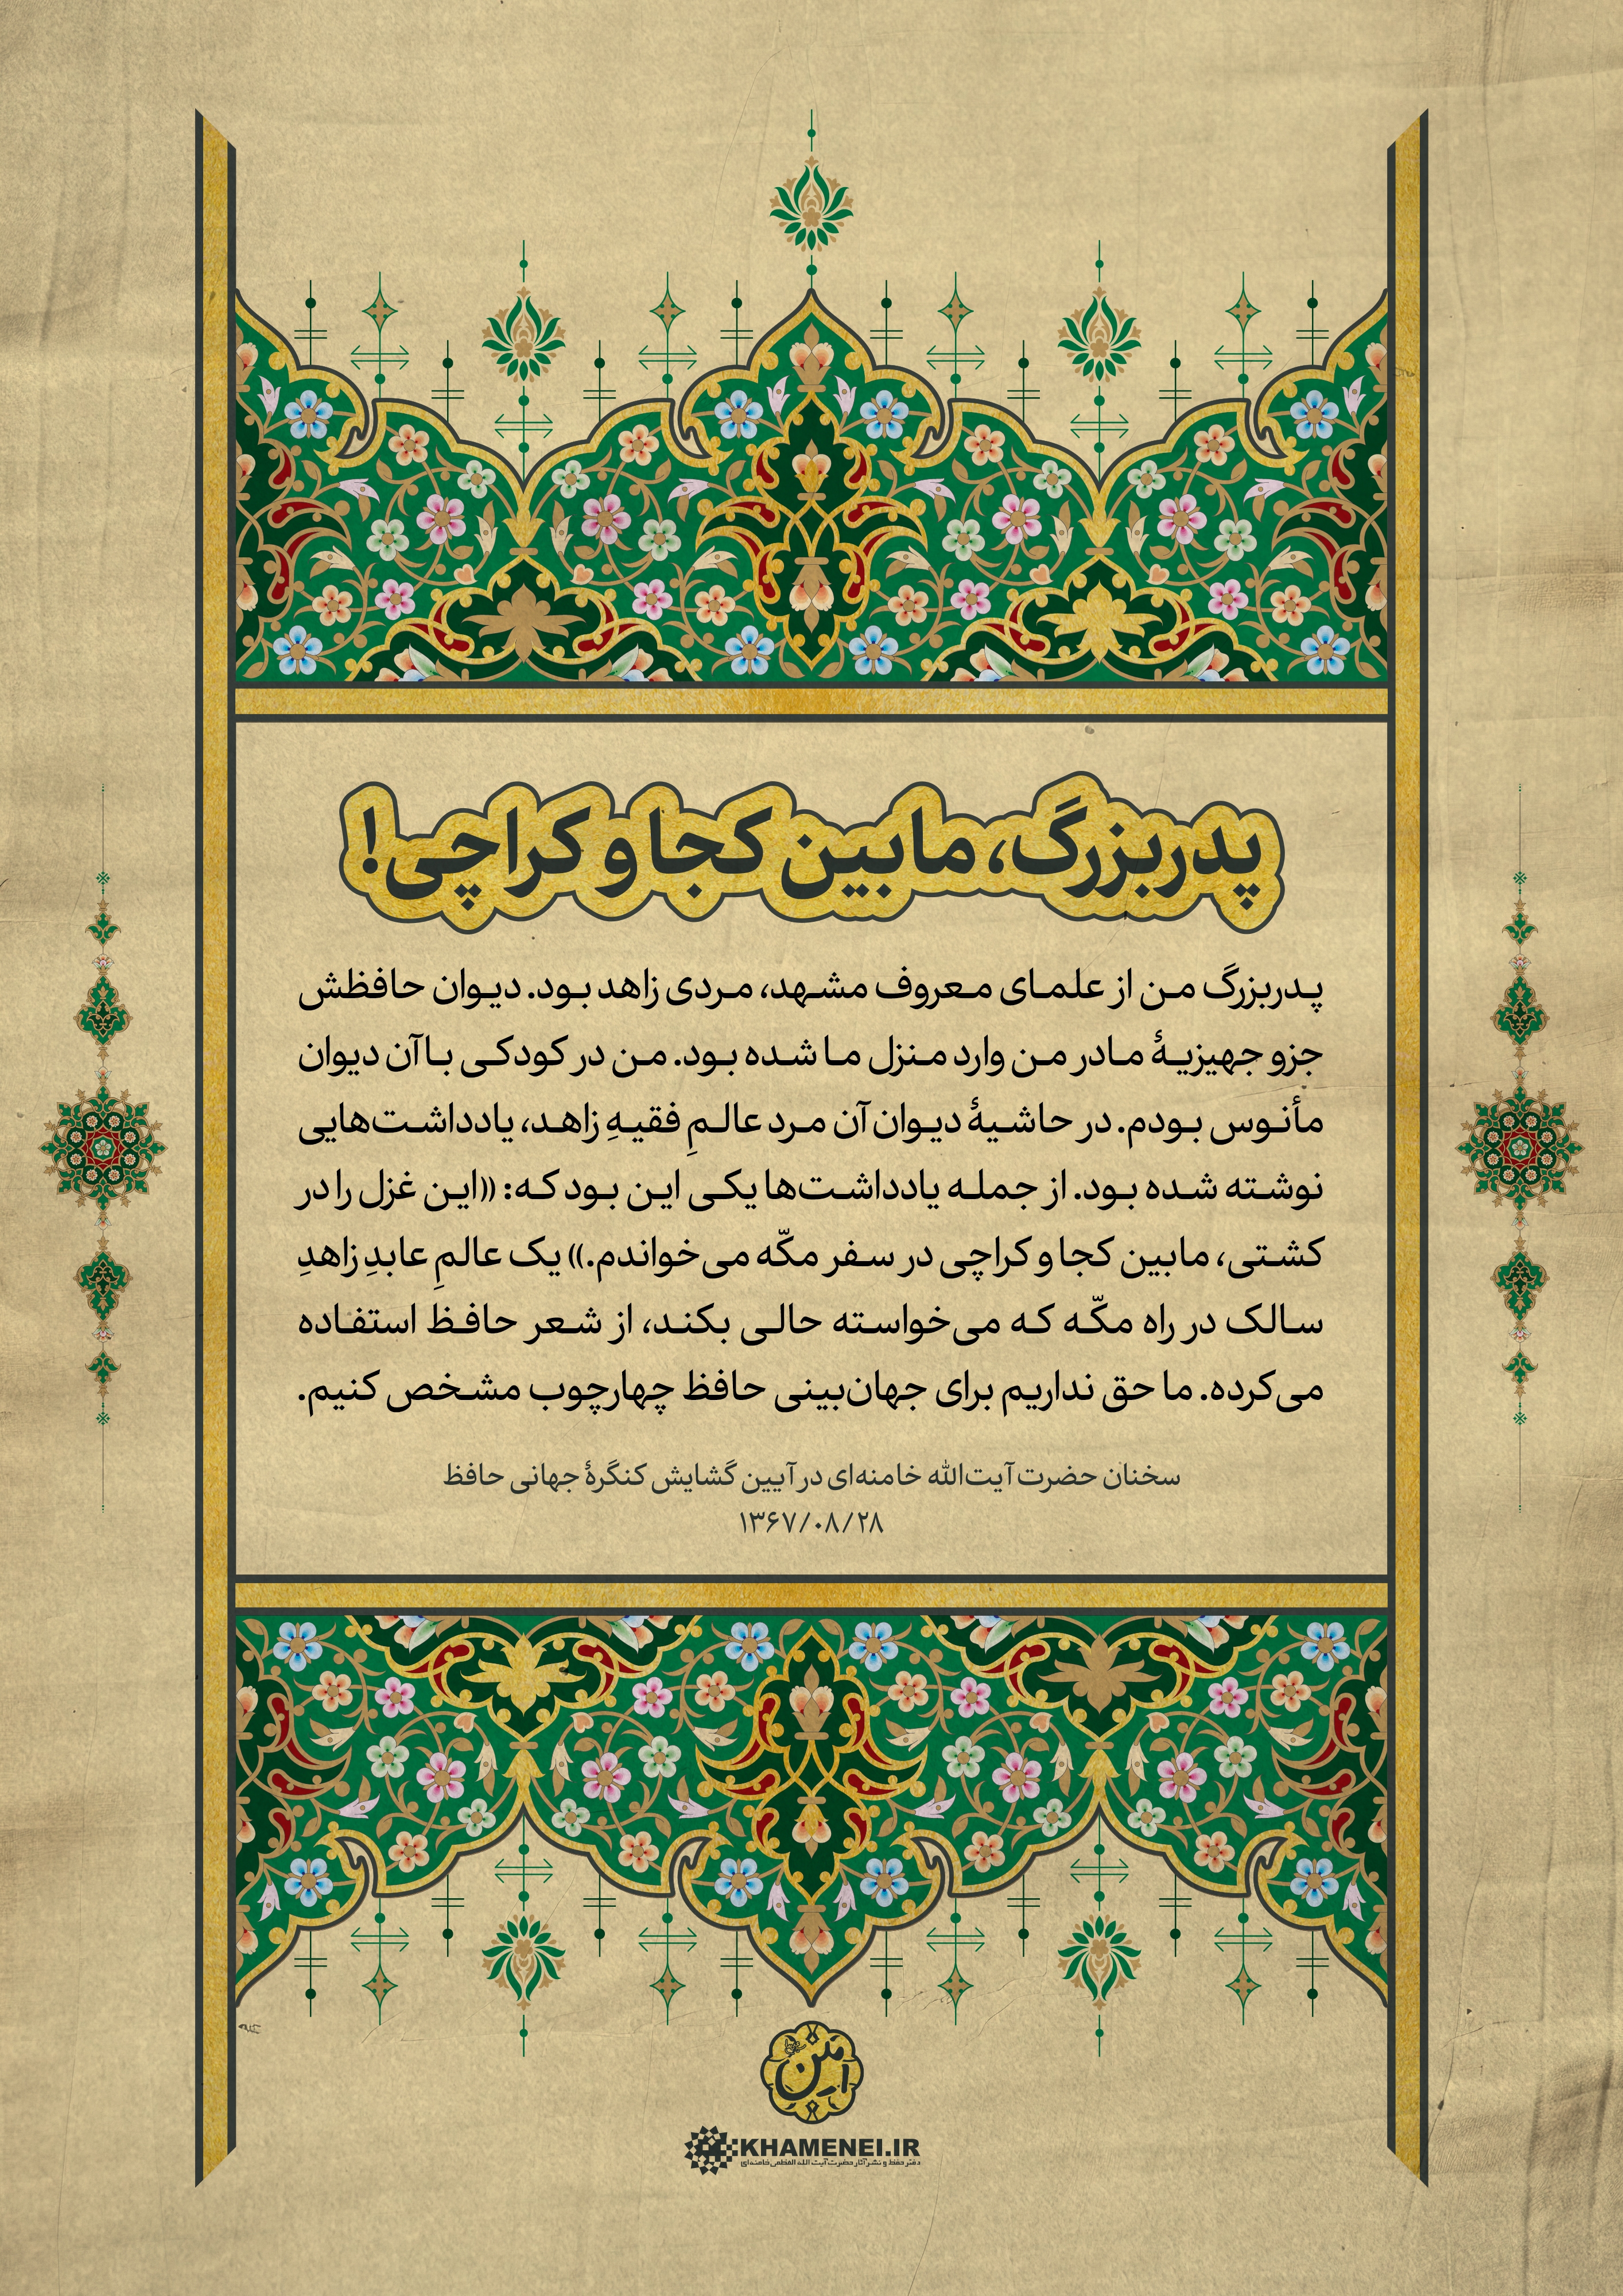 پدربزرگ، مابین کجا و کراچی!
پدربزرگ من از علمای معروف مشهد، مردی زاهد بود. دیوان حافظش
جزو جهیزیهٔ مادر من وارد منزل ما شده بود. من در کودکی با آن دیوان
مأنوس بودم. در حاشیهٔ دیوان آن مرد عالمِ فقیهِ زاهد، یادداشت‌هایی
نوشته شده بود. از جمله یادداشت‌ها یکی این بود که: «این غزل را در
کشتی، مابین کجا و کراچی در سفر مکّه می‌خواندم.» یک عالمِ عابدِ زاهدِ
سالک در راه مکّه که می‌خواسته حالی بکند، از شعر حافظ استفاده
می‌کرده. ما حق نداریم برای جهان‌بینی حافظ چهارچوب مشخص کنیم.
سخنان حضرت آیت‌الله خامنه‌ای در آیین گشایش کنگرهٔ جهانی حافظ
۱۳۶۷/۰۸/۲۸
KHAMENEI.IR
دفتر حفظ و نشر آثار حضرت آیت الله العظمی خامنه‌ای